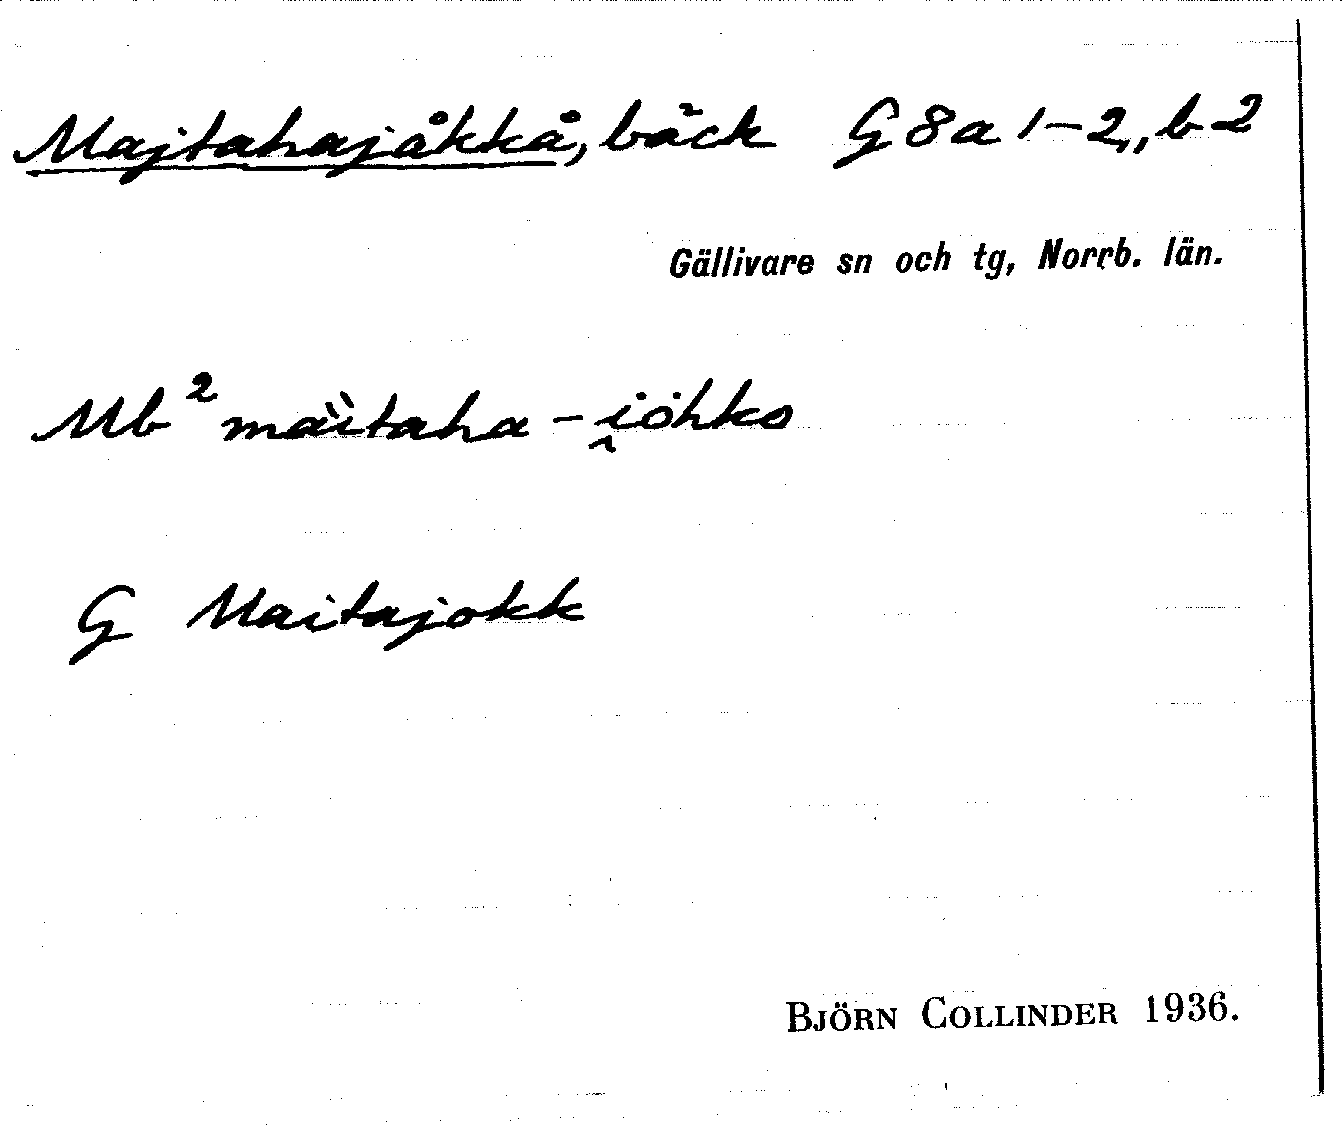 Majtahajåkkå, bäck G 8 a 1-2,, b 2
Gällivare sn och tg, Norrb. län.
Mb² mai̎taha - i̯ȯhko
G Maitajokk
BJÖRN COLLINDER 1936.